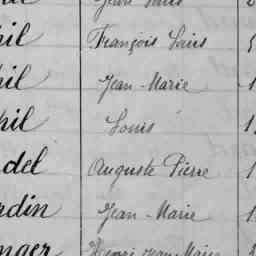 Jean Louis
hil François Louis
hil Jean-Marie 1
hil Louis 1
del Auguste Pierre 1
rdin Jean-Marie 1
nger Henri Jean Marie